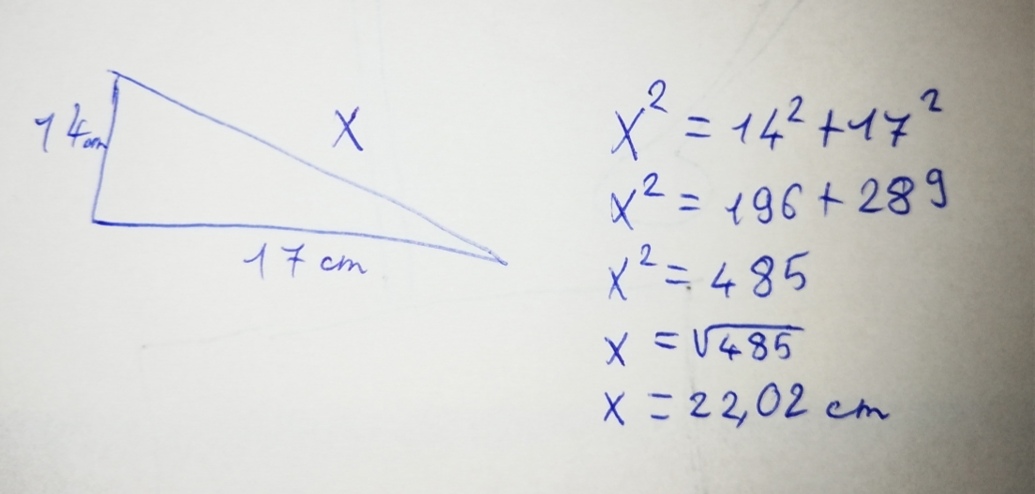 14cm
X
17 cm
X² = 14² + 17²
X² = 196 + 289
X² = 485
X = √485
X = 22,02 cm